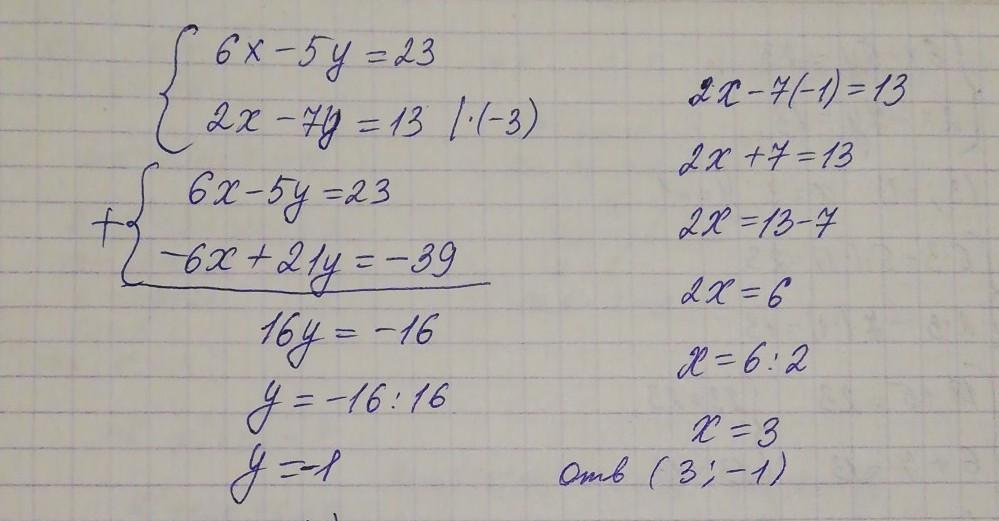 6x - 5y = 23
2x - 7y = 13 | · (-3)
+ 6x - 5y = 23
-6x + 21y = -39
16y = -16
y = -16 : 16
y = -1
2x - 7(-1) = 13
2x + 7 = 13
2x = 13 - 7
2x = 6
x = 6 : 2
x = 3
Отв (3; -1)